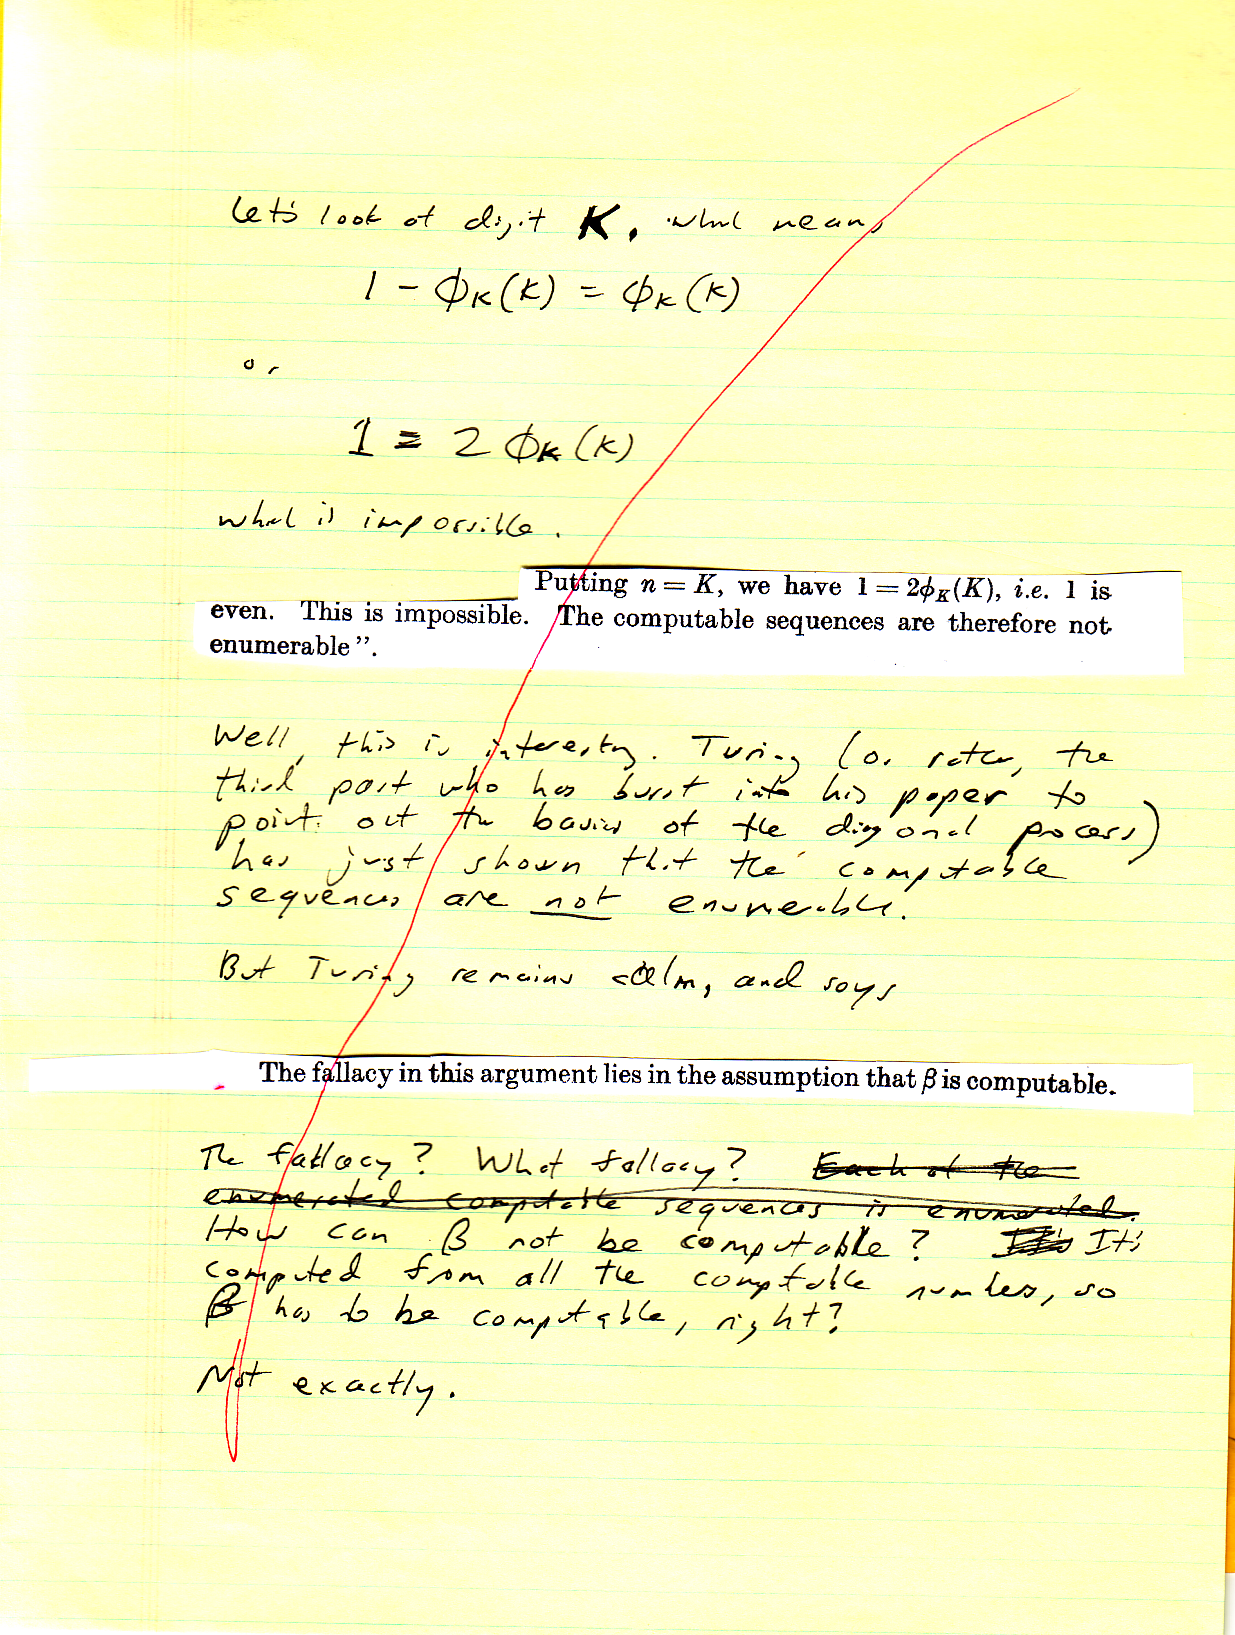 Let's look at digit K, what means
1 - ϕK(K) = ϕK(K)
or
1 = 2 ϕK(K)
what is impossible.
Putting n = K, we have 1 = 2ϕK(K), i.e. 1 is
even. This is impossible. The computable sequences are therefore not
enumerable".
Well, this is interesting. Turing (or rather, the
third part who has burst into his paper to
point out the basics of the diagonal process)
has just shown that the computable
sequences are not enumerable.
But Turing remains calm, and says
The fallacy in this argument lies in the assumption that β is computable.
The fallacy? What fallacy? Each of the
enumerated computable sequences is enumerated.
How can β not be computable? It's It's
computed from all the computable numbers, so
β has to be computable, right?
Not exactly.